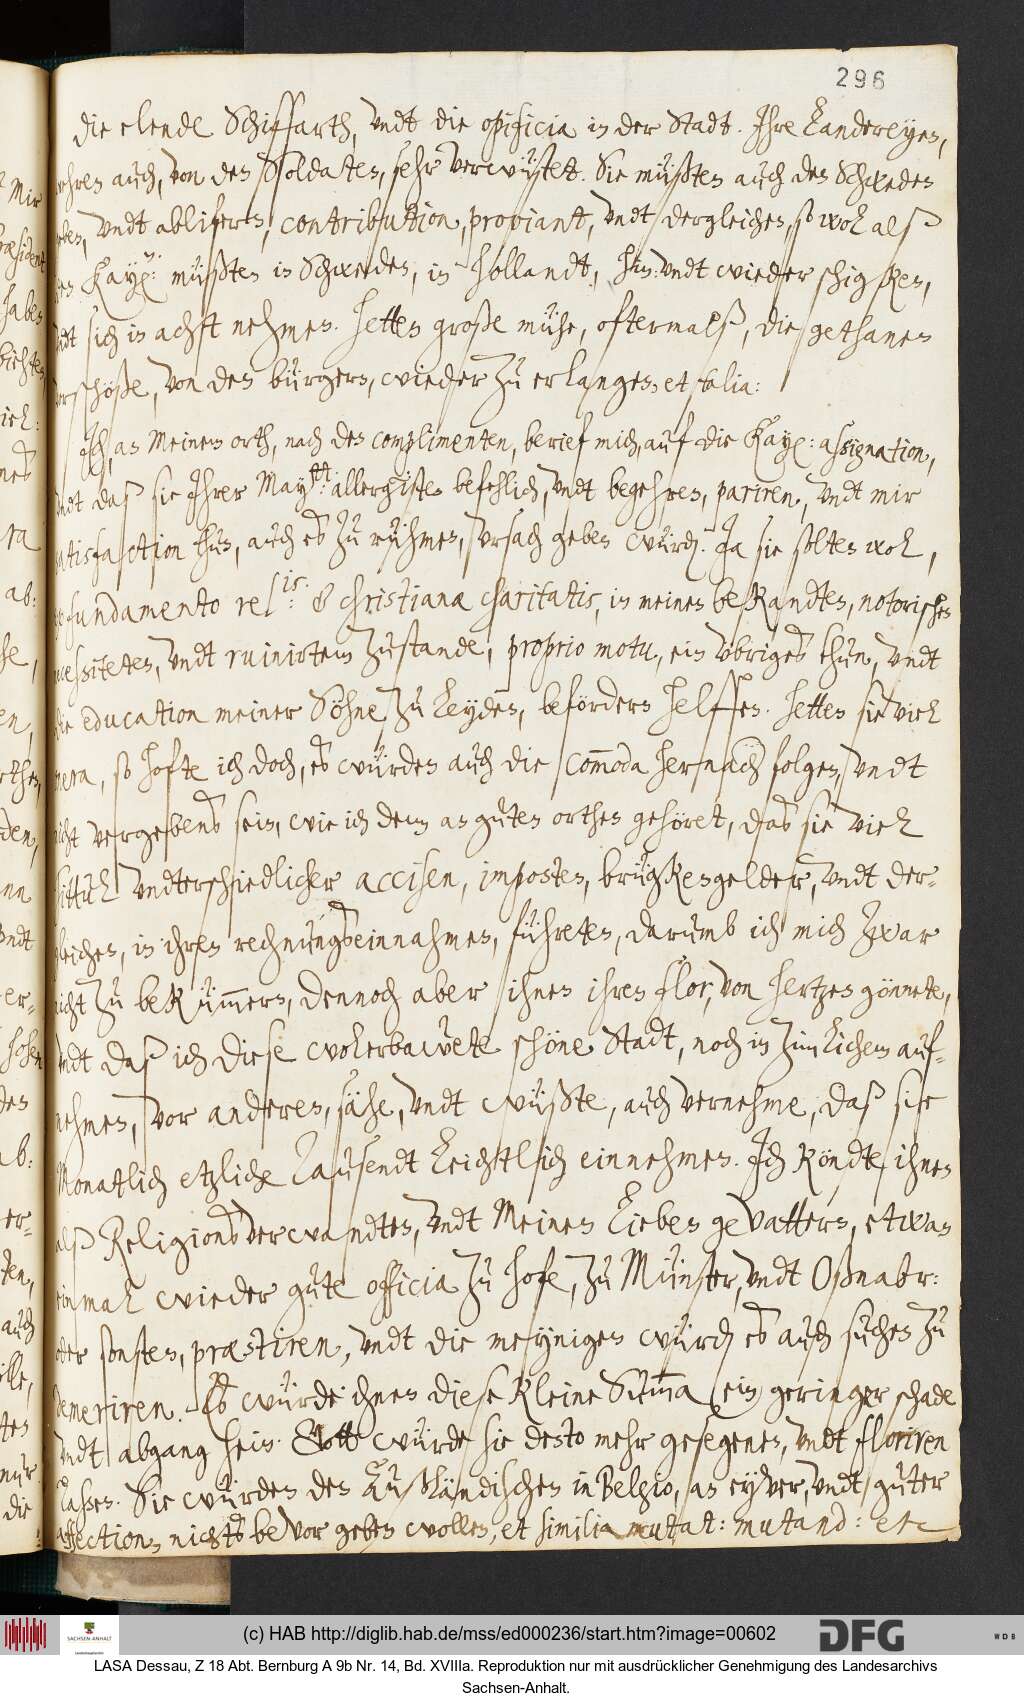 296
die elende Schiffarth, vndt die opificia in der Stadt. Ihre Landereyen,
wehren auch, von den Soldaten, sehr verwüstet. Sie müßten auch den Schweden
geben, vndt abliefern, contribution, proviant, vndt dergleichen, so wol alß
den Kay: müßten in Schweden, in Hollandt, hin: vndt wieder schigken,
vndt sich in acht nehmen. Hetten große mühe, oftermalß, die gethanen
vorschöße, von den bürgern, wieder zu erlangen, et talia:
Ich, an Meinem orth, nach den complimenten, berief mich, auf die Kay: assignation,
vndt daß sie Ihrer May:tt allergnste befehlich, vndt begehren, pariren, vndt mir
satisfaction thun, auch es zu rühmen, vrsach geben würden. Ja sie solten wol,
fundamento rel:is & christianæ charitatis, in meinen bekandten, notorischen
necessiteten, vndt ruinirtem zustande, proprio motu, ein vbriges thun, vndt
die education meiner Söhne zu Leyden, befördern helffen. Hetten sie viel
onera, so hofte ich doch, es würden auch die com̄oda hernach folgen, vndt
nicht vergebens sein, wie ich denn an guten orthen gehöret, das sie viel
Tittul vndterschiedlicher accisen, imposten, brügkengelder, vndt der-
gleichen, in ihren rechnungseinnahmen, führeten, darumb ich mich zwar
nicht zu bekümm̄ern, dennoch aber ihnen ihren flor, von hertzen gönnete,
vndt daß ich diese wolerbawete schöne Stadt, noch in zimlichem auf-
nehmen, vor anderen, sähe, vndt wüßte, auch vernehme, daß sie
Monatlich etzliche Tausendt leichtlich einnehmen. Ich köndte ihnen
alß Religionsverwandten, vndt Meinen lieben gevattern, etwas
einmal wieder gute officia zu hofe, zu Münster, vndt Oßnabr:
oder sonsten, præstiren, vndt die meynigen würden es auch suchen zu
demeriren. Es würde ihnen diese kleine Sum̄a (ein geringer schade
vndt abgang sein. Gott würde sie desto mehr gesegenen, vndt floriren
laßen. Sie würden den Außländischen in Belgio, an eyver, vndt guter
affection, nichts bevor geben wollen, et similia mutat: mutand: etc
Mir
præsident
haben
ab:
auch
die
(c) HAB http://diglib.hab.de/mss/ed000236/start.htm?image=00602
SACHSEN-ANHALT
DFG
WDB
LASA Dessau, Z 18 Abt. Bernburg A 9b Nr. 14, Bd. XVIIIa. Reproduktion nur mit ausdrücklicher Genehmigung des Landesarchivs
Sachsen-Anhalt.